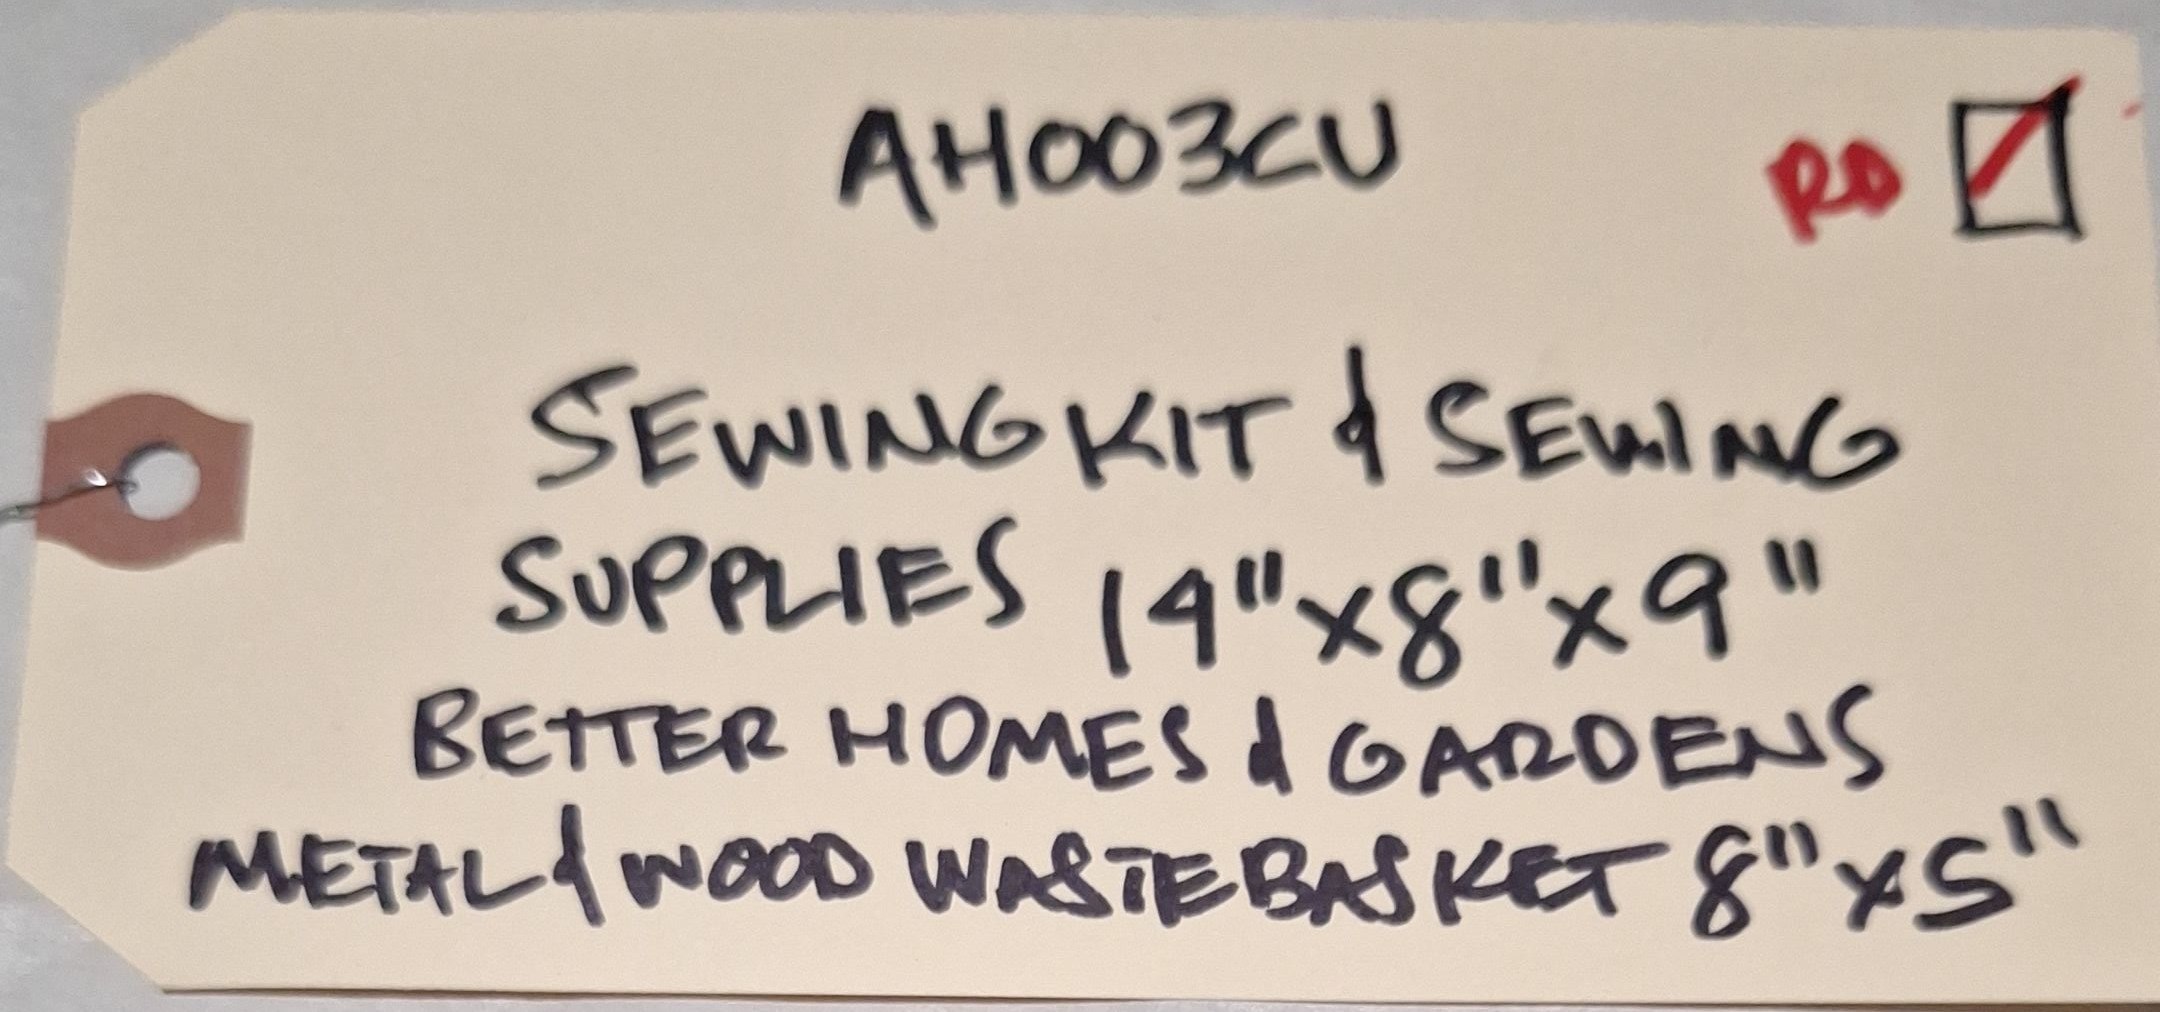 AH003CU
RD
SEWING KIT & SEWING
SUPPLIES 14"x8"x9"
BETTER HOMES & GARDENS
METAL & WOOD WASTEBASKET 8"x5"